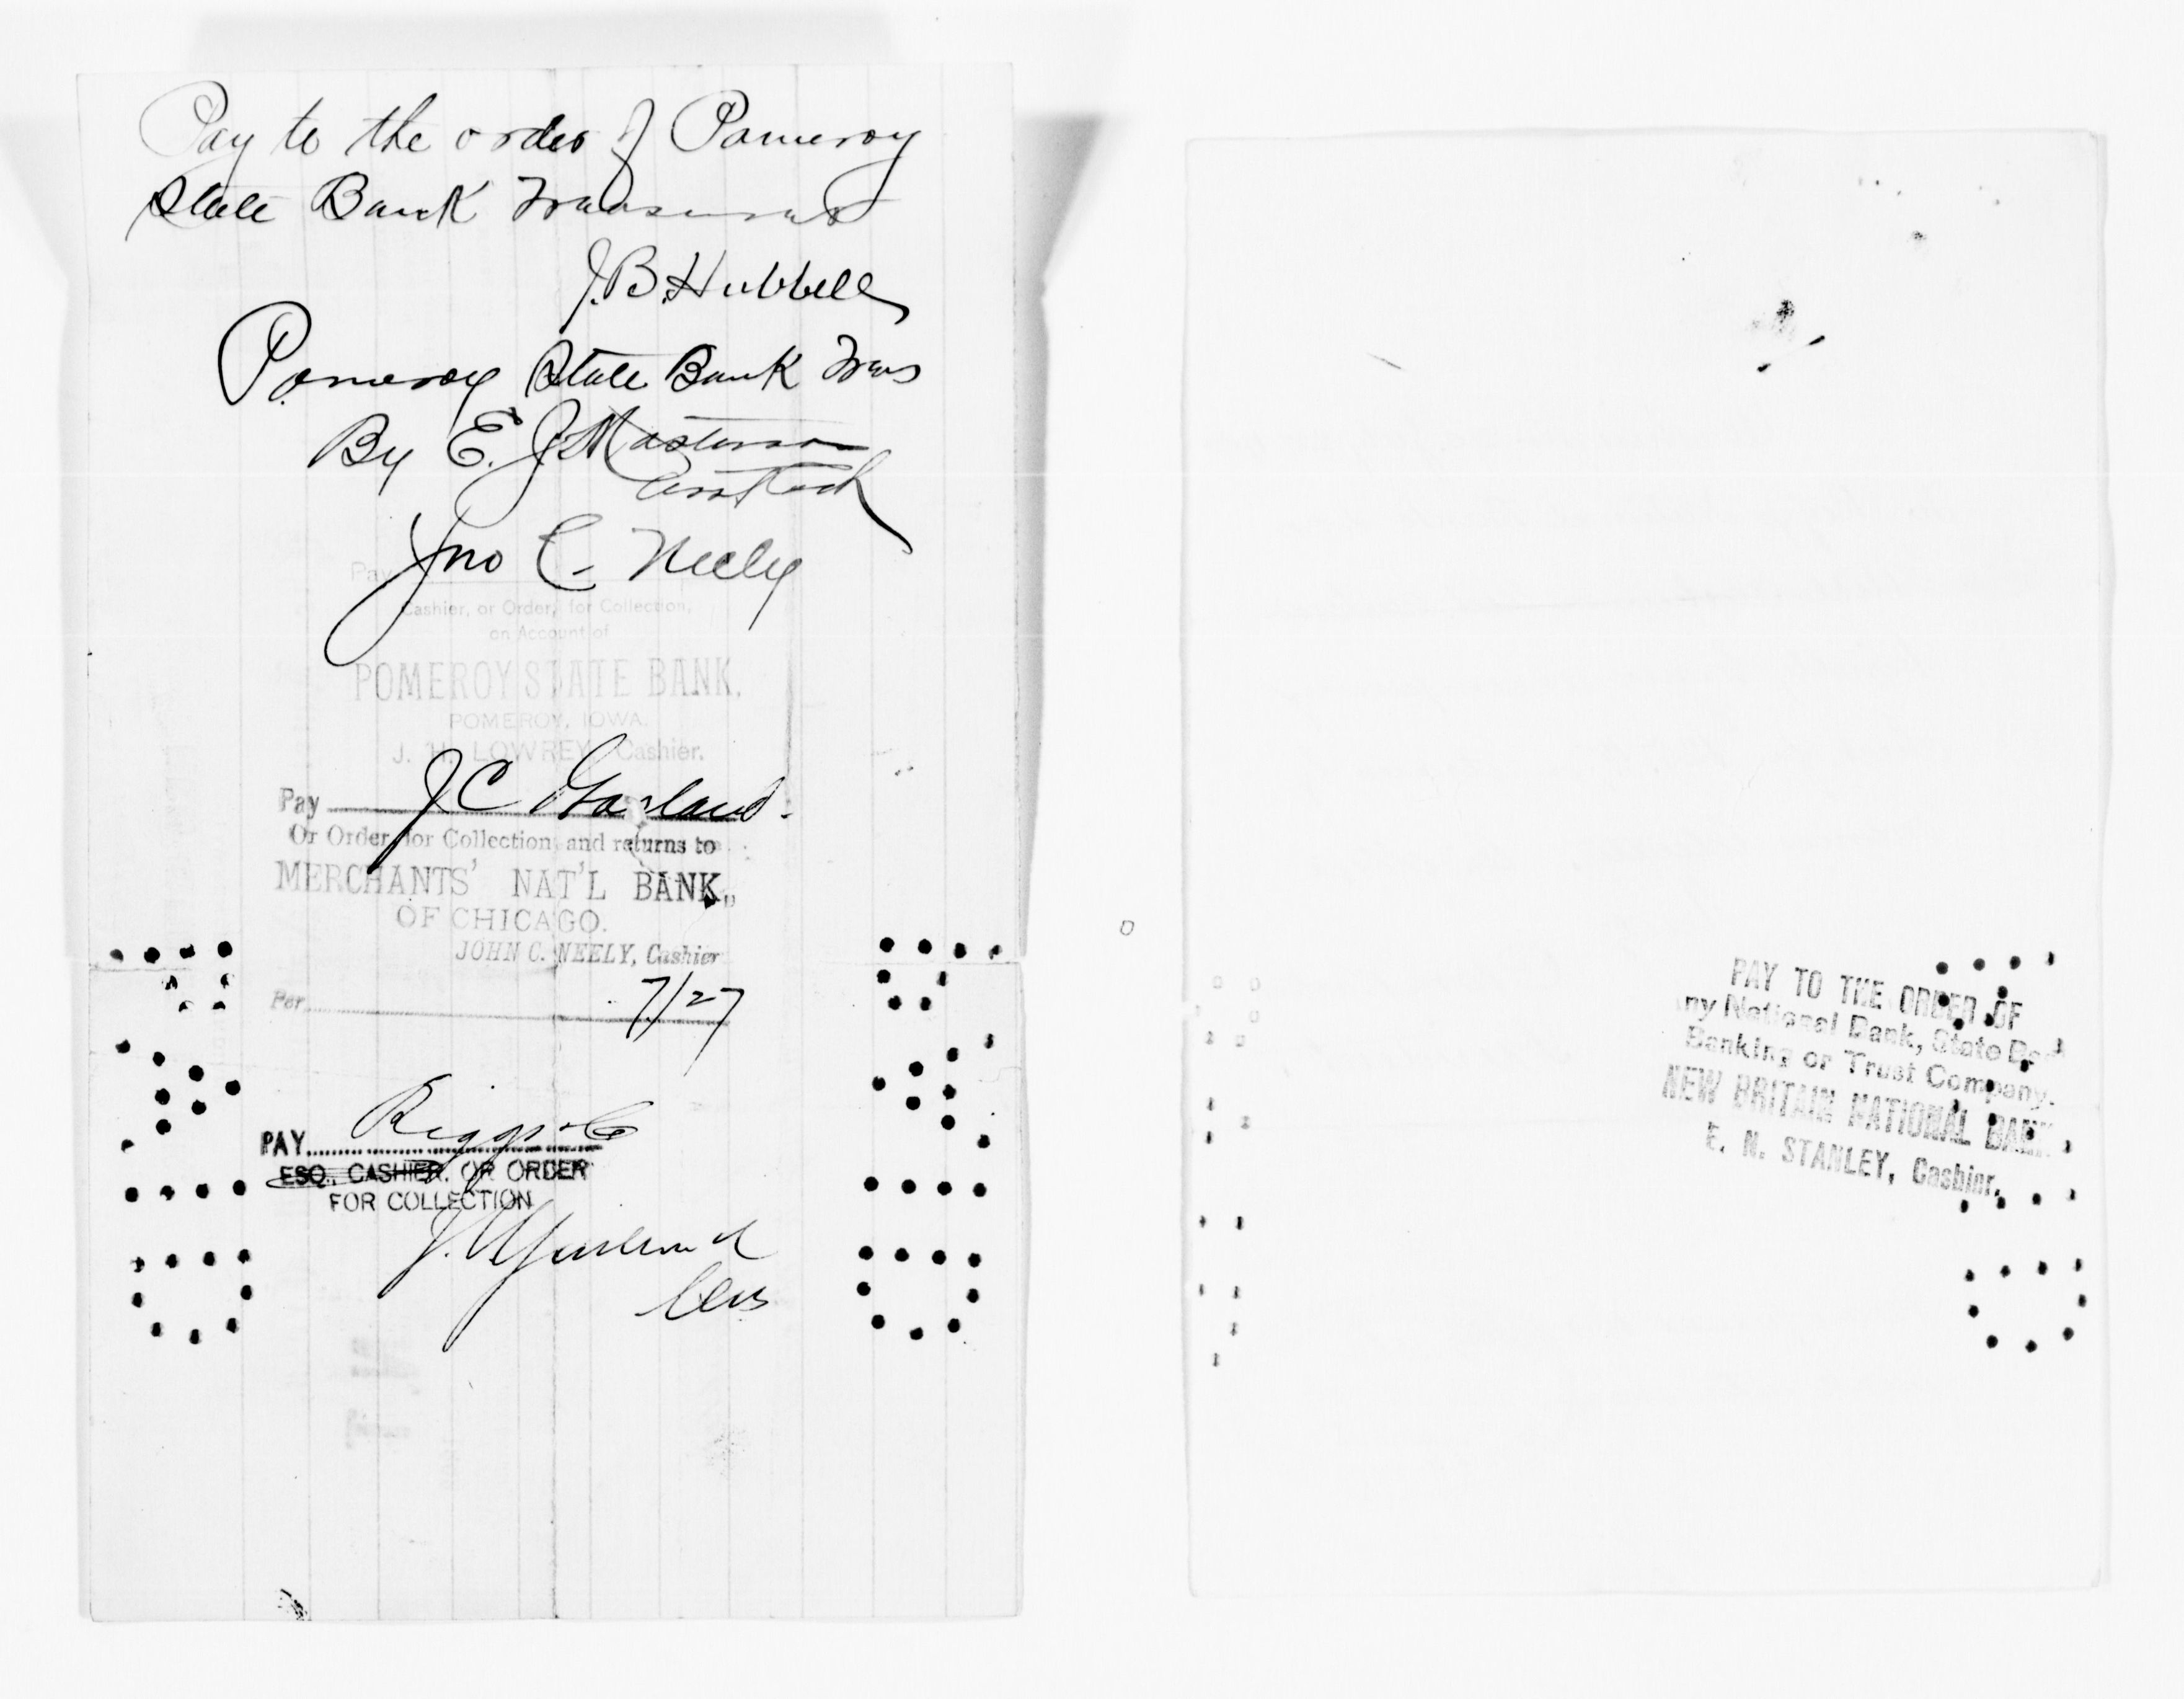 Pay to the order of Pomeroy
State Bank
J. B. Hubbell
Pomeroy State Bank
By E. J. Masterson
Jno C. Neely
Pay
Cashier, or Order, for Collection,
on Account of
POMEROY STATE BANK,
POMEROY, IOWA.
J. H. LOWREY, Cashier.
Pay J C Garland.
Or Order, for Collection, and returns to
MERCHANTS' NAT'L BANK,
OF CHICAGO.
JOHN C. NEELY, Cashier
Per 7/27
PAY Riggs & Co
ESQ., CASHIER, OR ORDER
FOR COLLECTION
J. C. Garland
PAY TO THE ORDER OF
ny National Bank, State Ba
Banking or Trust Company.
NEW BRITAIN NATIONAL BANK
E. N. STANLEY, Cashier.